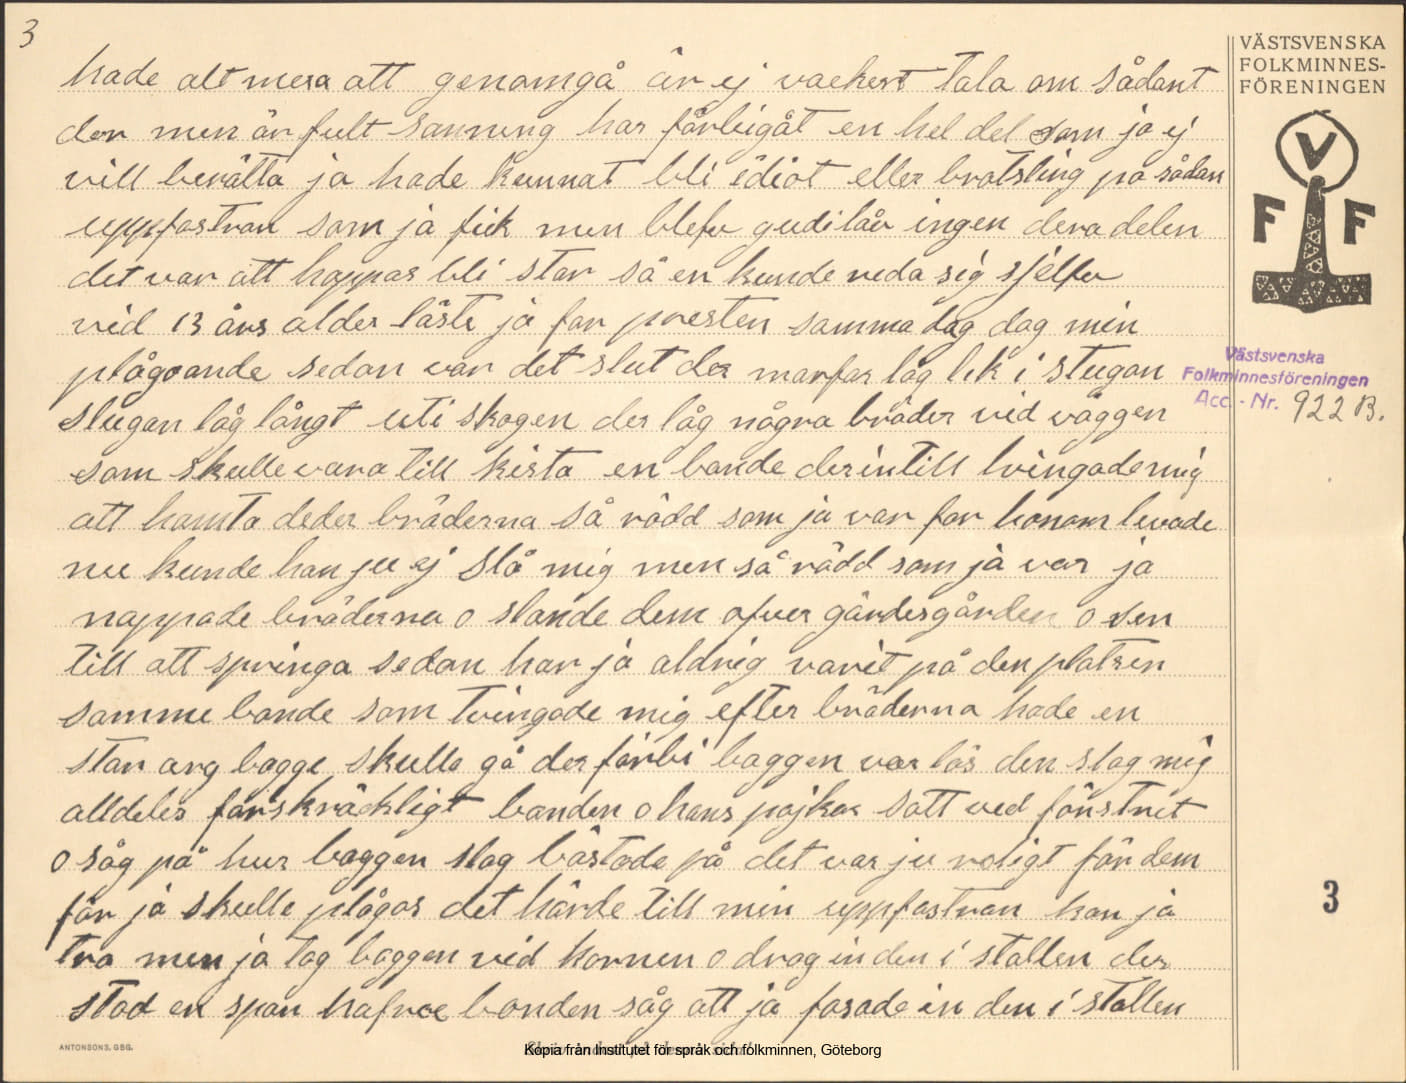 3
hade alt mera att genomgå är ej vackert tala om sådant
der men är fult sanning har förbigåt en hel del som ja ej
vill berätta ja hade kunnat bli idiot eller brotsling på sådan
uppfostran som ja fick men blefv gudilåv ingen dera delen
det var att hoppas bli stor så en kunde reda sig sjelfv
vid 13 års ålder läste ja for presten samma dag dag min
plågoande sedan var det slut der morfar låg lik i stugan
stugan låg långt uti skogen der låg några bräder vid väggen
som skulle vara till kista en bonde derintill tvingade mig
att hämta deder bräderna så rädd som ja var for honom levade
nu kunde han ju ej slå mig men så rädd som ja var ja
nappade bräderna o slände dem øfver gärdesgården o sen
till att springa sedan har ja aldrig varit på den platsen
samme bonde som tvingade mig efter bräderna hade en
stor arg bagge skulle gå der förbi baggen var lös den slog mig
alldeles förskräckligt bonden o hans pojkar satt ved fönstret
o såg på hur baggen slog bästade på det var ju roligt för dem
för ja skulle plågas det hörde till min uppfostran kan ja
tro men ja tog baggen vid hornen o drog in den i stallen der
stod en span hafre bonden såg att ja fosade in den i stallen
VÄSTSVENSKA
FOLKMINNES-
FÖRENINGEN
V
F F
Västsvenska
Folkminnesföreningen
Acc. - Nr. 922 B.
3
ANTONSONS, GBG.
Kopia från Institutet för språk och folkminnen, Göteborg